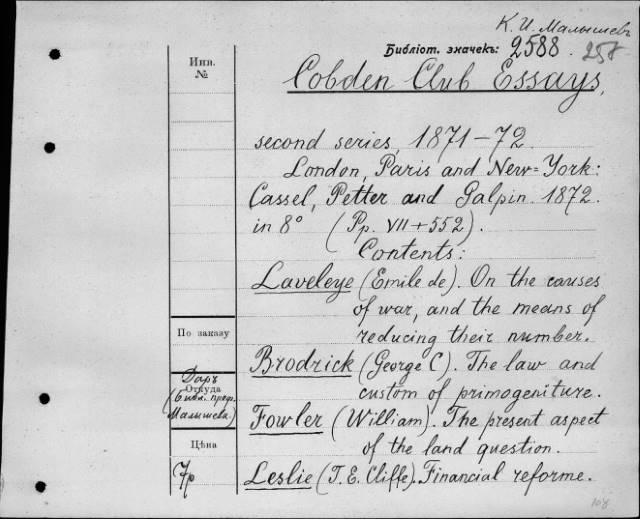 К. И. Малышевъ
Библіот. значекъ: 2588. 258
Инв.
№
Cobden Club Essays,
second series, 1871-72.
London, Paris and New=York:
Cassel, Petter and Galpin. 1872.
in 8° (Pp. VII+552).
Contents:
Laveleye (Emile de). On the causes
of war, and the means of
reducing their number.
По заказу
Brodrick (George C). The law and
custom of primogeniture.
Даръ
Откуда
(библ. проф.
Малышева)
Fowler (William). The present aspect
of the land question.
Цѣна
7р
Leslie (T. E. Cliffe). Financial reforme.
108